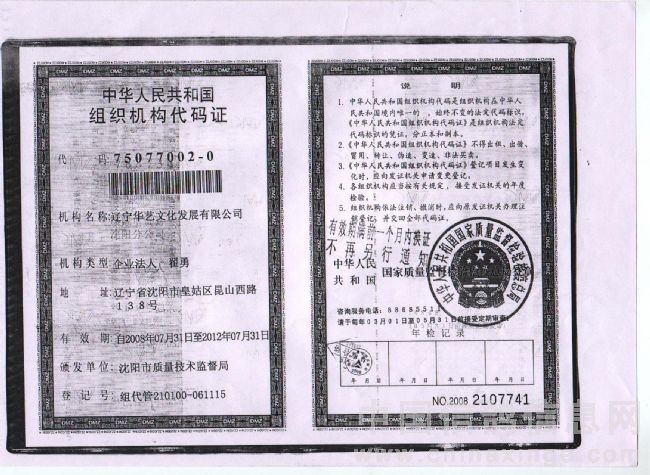 中华人民共和国
组织机构代码证
代 码 75077002-0
机构名称:辽宁华艺文化发展有限公司
机构类型:企业法人 翟勇
地 址:辽宁省沈阳市皇姑区昆山西路
138号
有 效 期 自2008年07月31日至2012年07月31日
颁发单位:沈阳市质量技术监督局
登 记 号 组代管210100-061115
说 明
1. 中华人民共和国组织机构代码是组织机构在中华人
民共和国境内唯一的、始终不变的法定代码标识,
《中华人民共和国组织机构代码证》是组织机构法定
代码标识的凭证,分正本和副本。
2. 《中华人民共和国组织机构代码证》不得出租、出借、
冒用、转让、伪造、变造、非法买卖。
3. 《中华人民共和国组织机构代码证》登记项目发生变
化时,应向发证机关申请变更登记。
4. 各组织机构应当按有关规定,接受发证机关的年度
检验。
5. 组织机构依法注销、撤消时,应向原发证机关办理注
销登记,并交回全部代码证。
有效期满前一个月内换证
不再另行通知
中华人民
共和国 国家质量
咨询服务电话: 88685511
请于每年03月01日至05月31日前接受定期审查
年检记录
年 月 日 年 月 日 年 月 日 年 月 日
NO.2008 2107741
www.chinaxinge.com